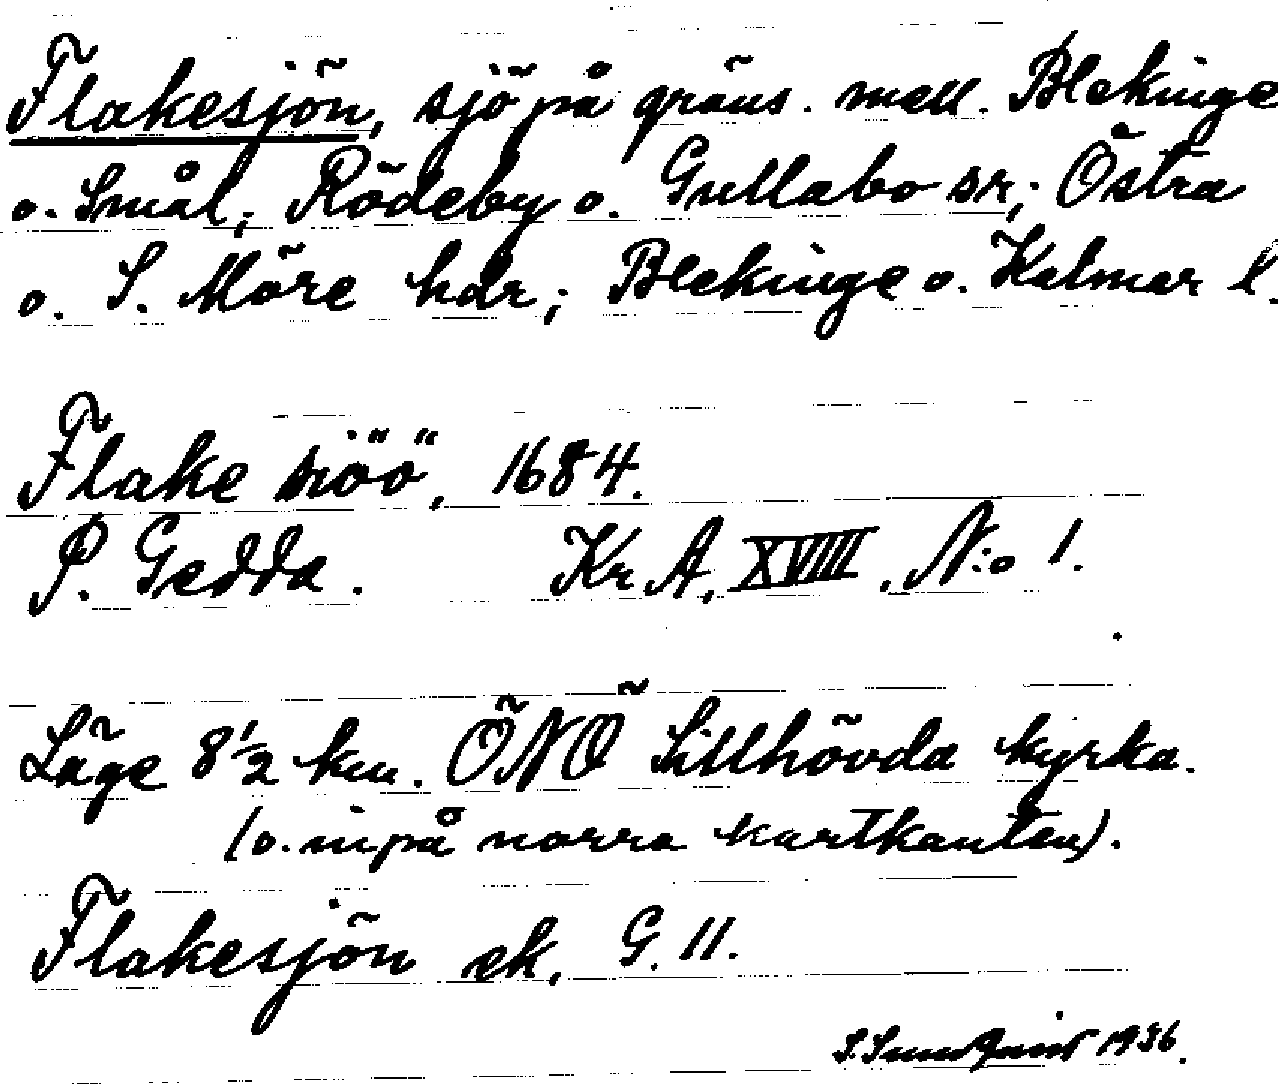 Flakesjön, sjö på gräns. mell. Blekinge
o. Smål, Rödeby o. Gullabo sr; Östra
o. S. Möre hdr; Blekinge o. Kalmar l.
Flake siöö, 1684.
P. Gedda. Kr A, XVIII, N:o 1.
Läge 8 1/2 km. ÖNÖ Sillhövda kyrka.
(o. inpå norra kartkanten).
Flakesjön ek, G. 11.
S. Sundquist 1936.